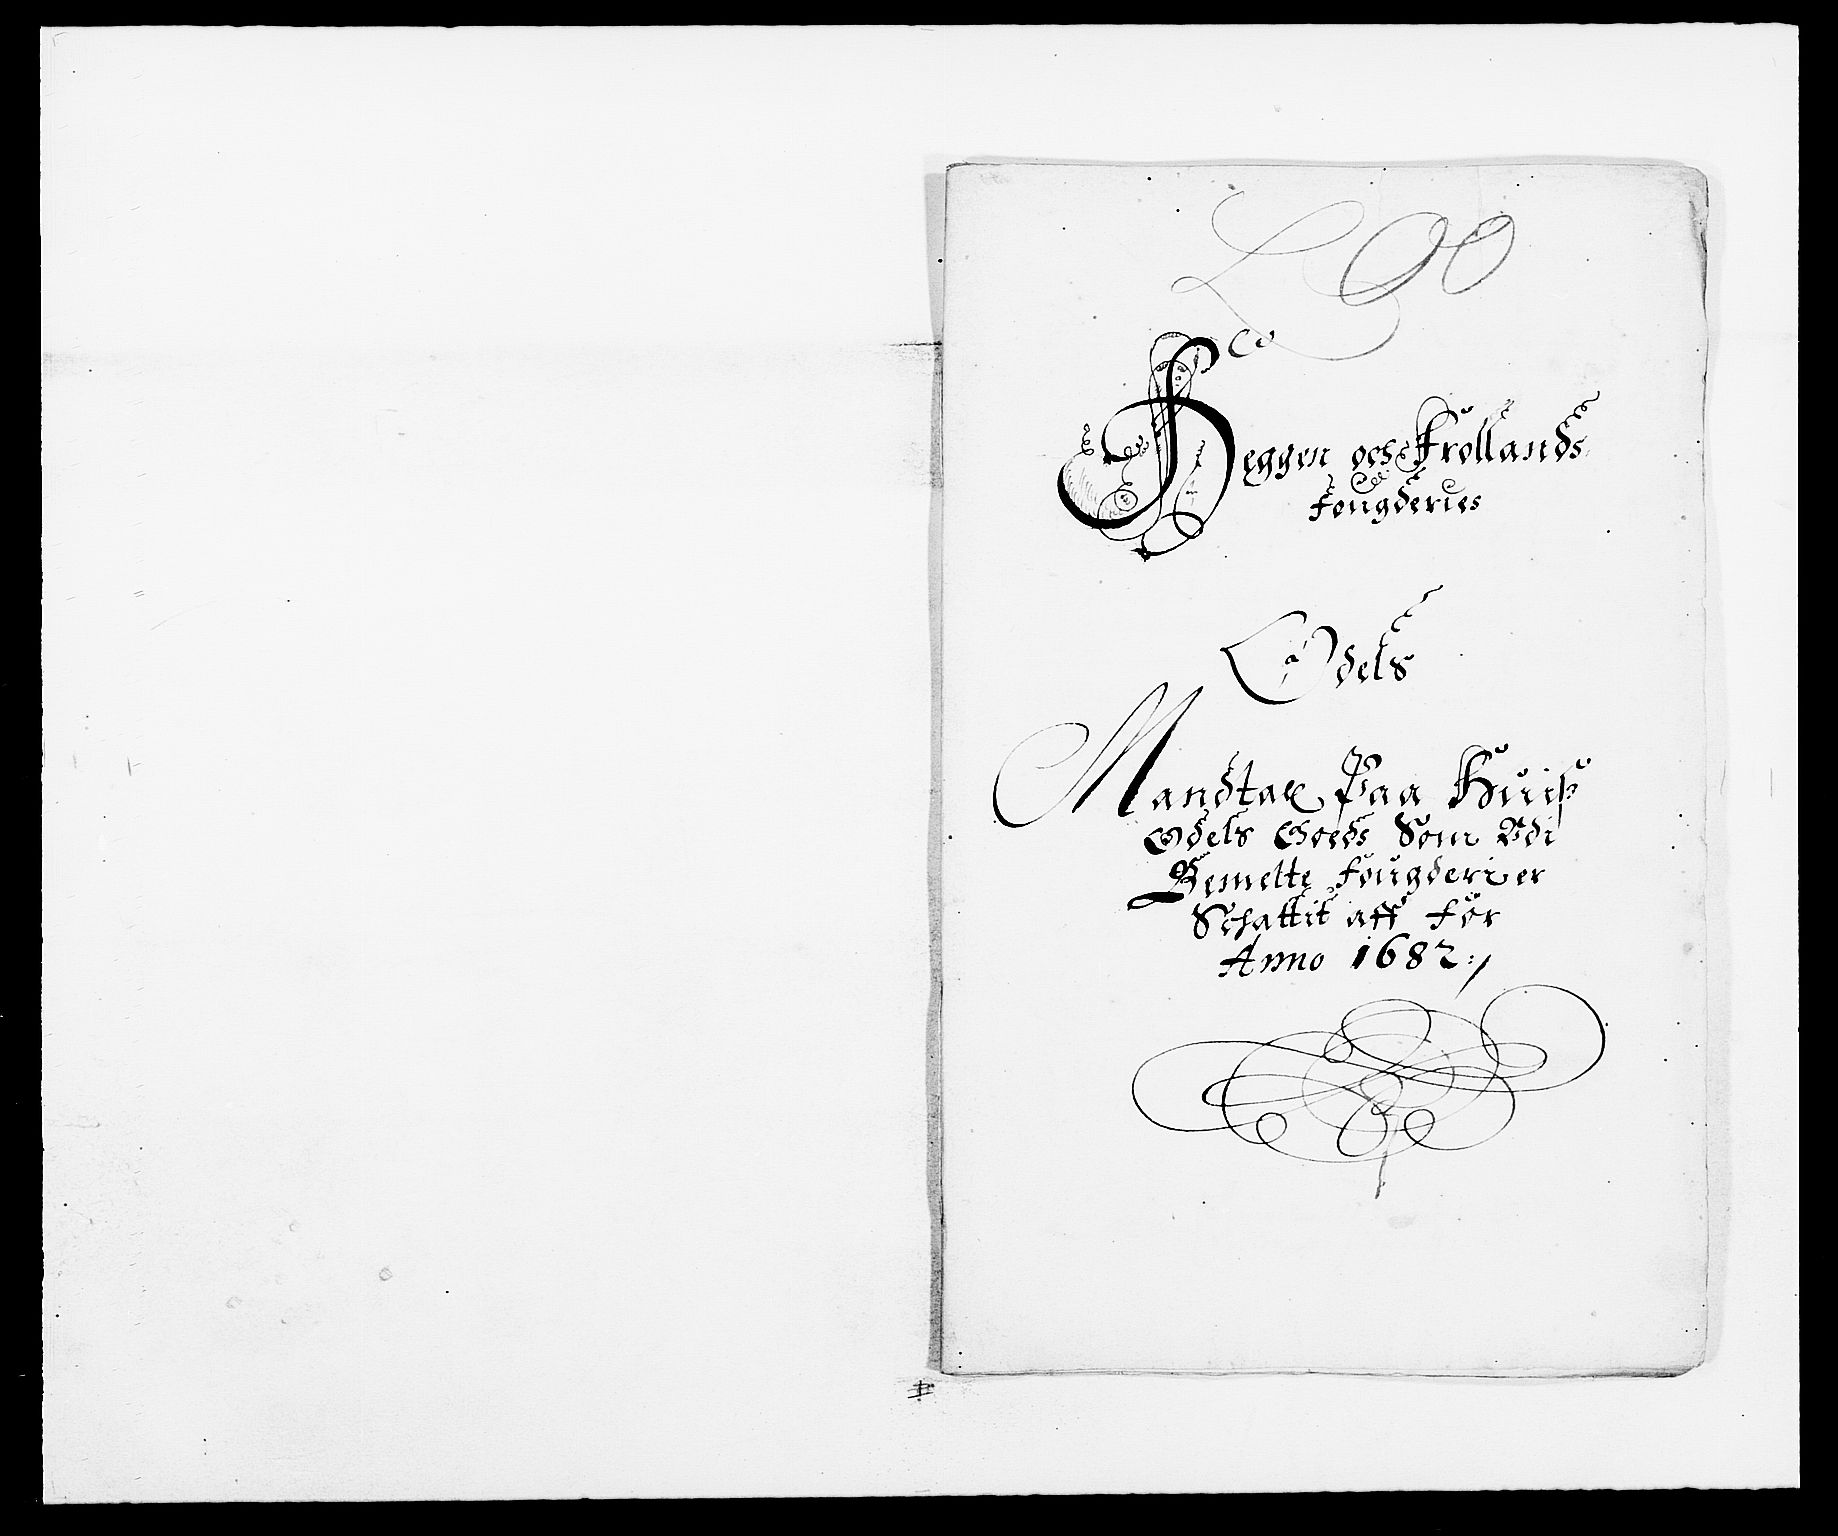 Heggen och Frøllands
Fougderies
Odels
Mandtal Paa Huis
Odels Goeds Som Udi
Bemelte Fougderier
Schattit aff för
Anno 1682